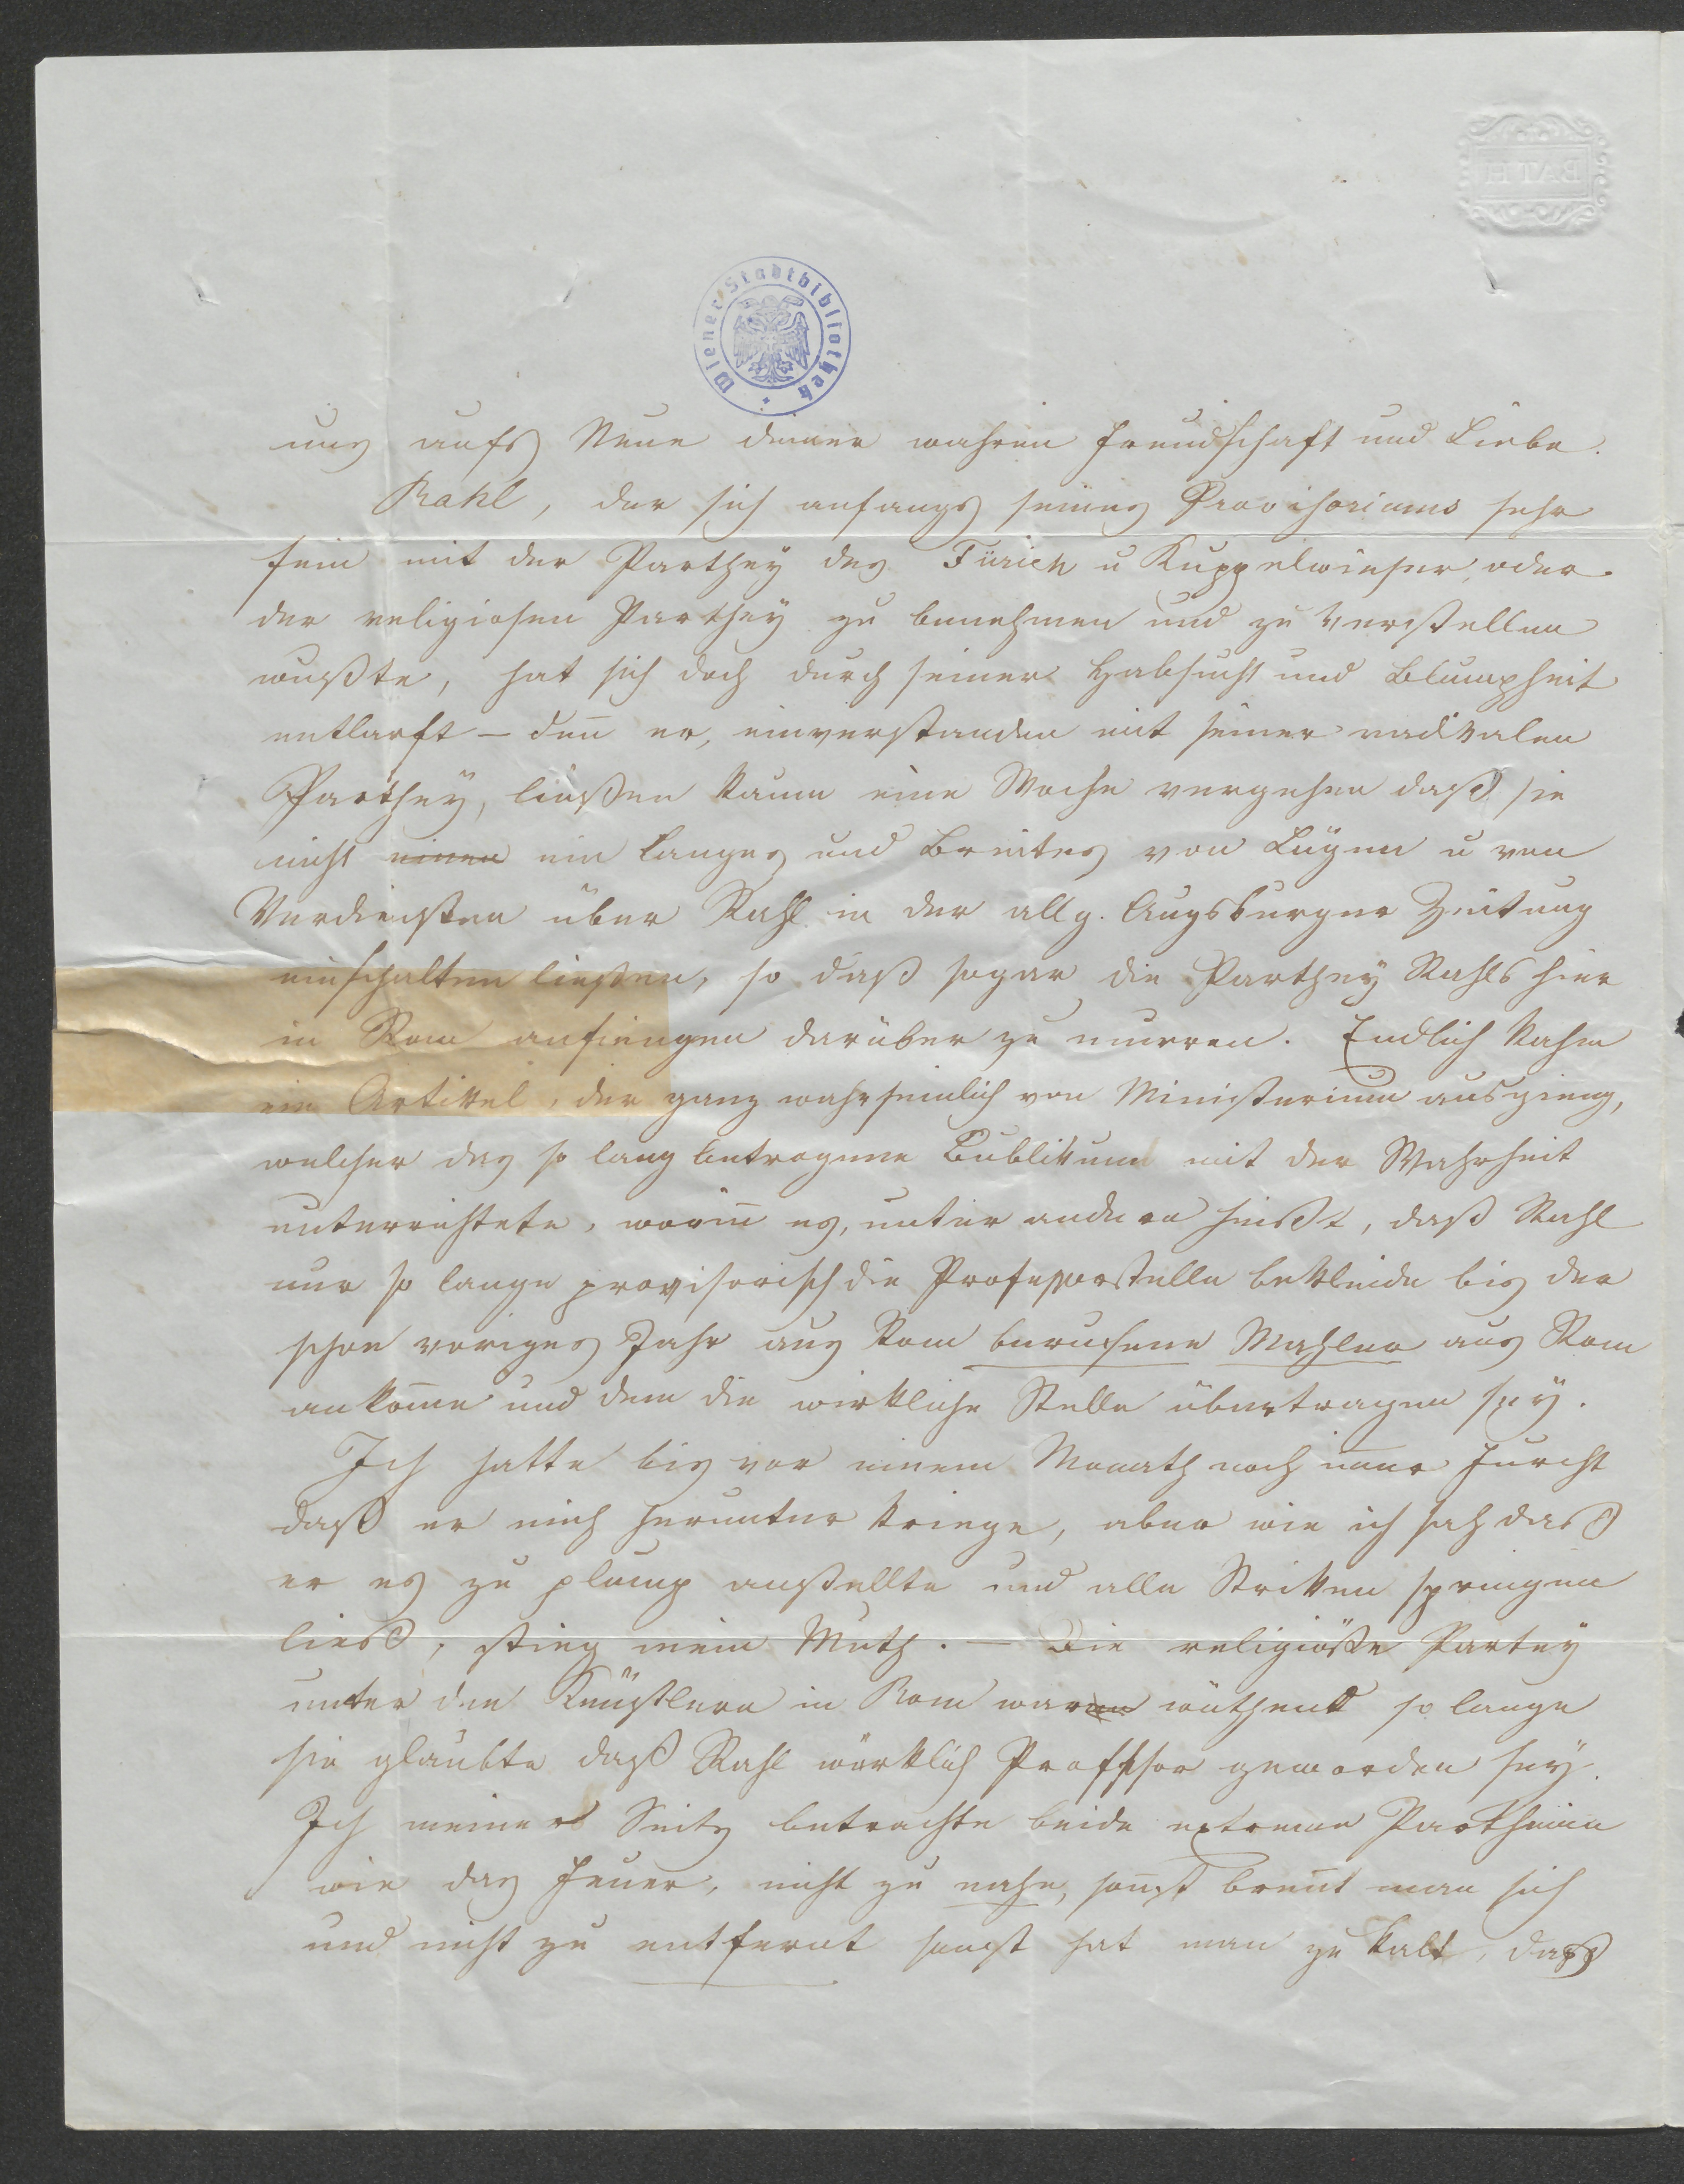 BATH
Wiener Stadtbibliothek
uns aufs Neue deiner wahren Freundschaft und Liebe.
Rahl, der sich anfangs seines Provisoriums sehr
fein mit der Parthey des Fürich u Kuppelwieser, oder
der religiosen Parthey zu benehmen und zu verstellen
wußte, hat sich doch durch seiner Habsucht und Blumpheit
entlarft – den̅ er, einverstanden mit seiner radikalen
Parthey, ließen kaum eine Woche vergehen daß sie
nicht einen ein langes und Breites von Lügen u von
Verdiensten über Rahl in der allg. Augsburger Zeitung
einschalten ließen, so daß sogar die Parthey Rahls hier
in Rom anfiengen darüber zu murren. Endlich kahm
ein Artikkel, der ganz wahrscheinlich von Ministerium ausgieng,
welcher das so lang betrogene Bublikum mit der Wahrheit
unterrichtete, worin̅ es, unter andern heißt, daß Rahl
nur so lange provisorisch die Professorstelle bekleide bis der
schon voriges Jahr aus Rom berufene Mahler aus Rom
ankom̅e und dem die wirkliche Stelle übertragen sey.
Ich hatte bis vor einem Monath noch im̅er Furcht
daß er mich herunter kriege, aber wie ich sah daß
er es zu plump anstellte und alle Strikken springen
ließ, stieg mein Muth. – Die religiöße Partey
unter den Künstlern in Rom waren wüthend so lange
sie glaubte daß Rahl würklich Proffesor geworden sey.
Ich meiner Seits betrachte beide extreme Partheien
wie das Feuer, nicht zu nahe, son̅st bren̅t man sich
und nicht zu entfernt sonst hat man zu kalt, daß